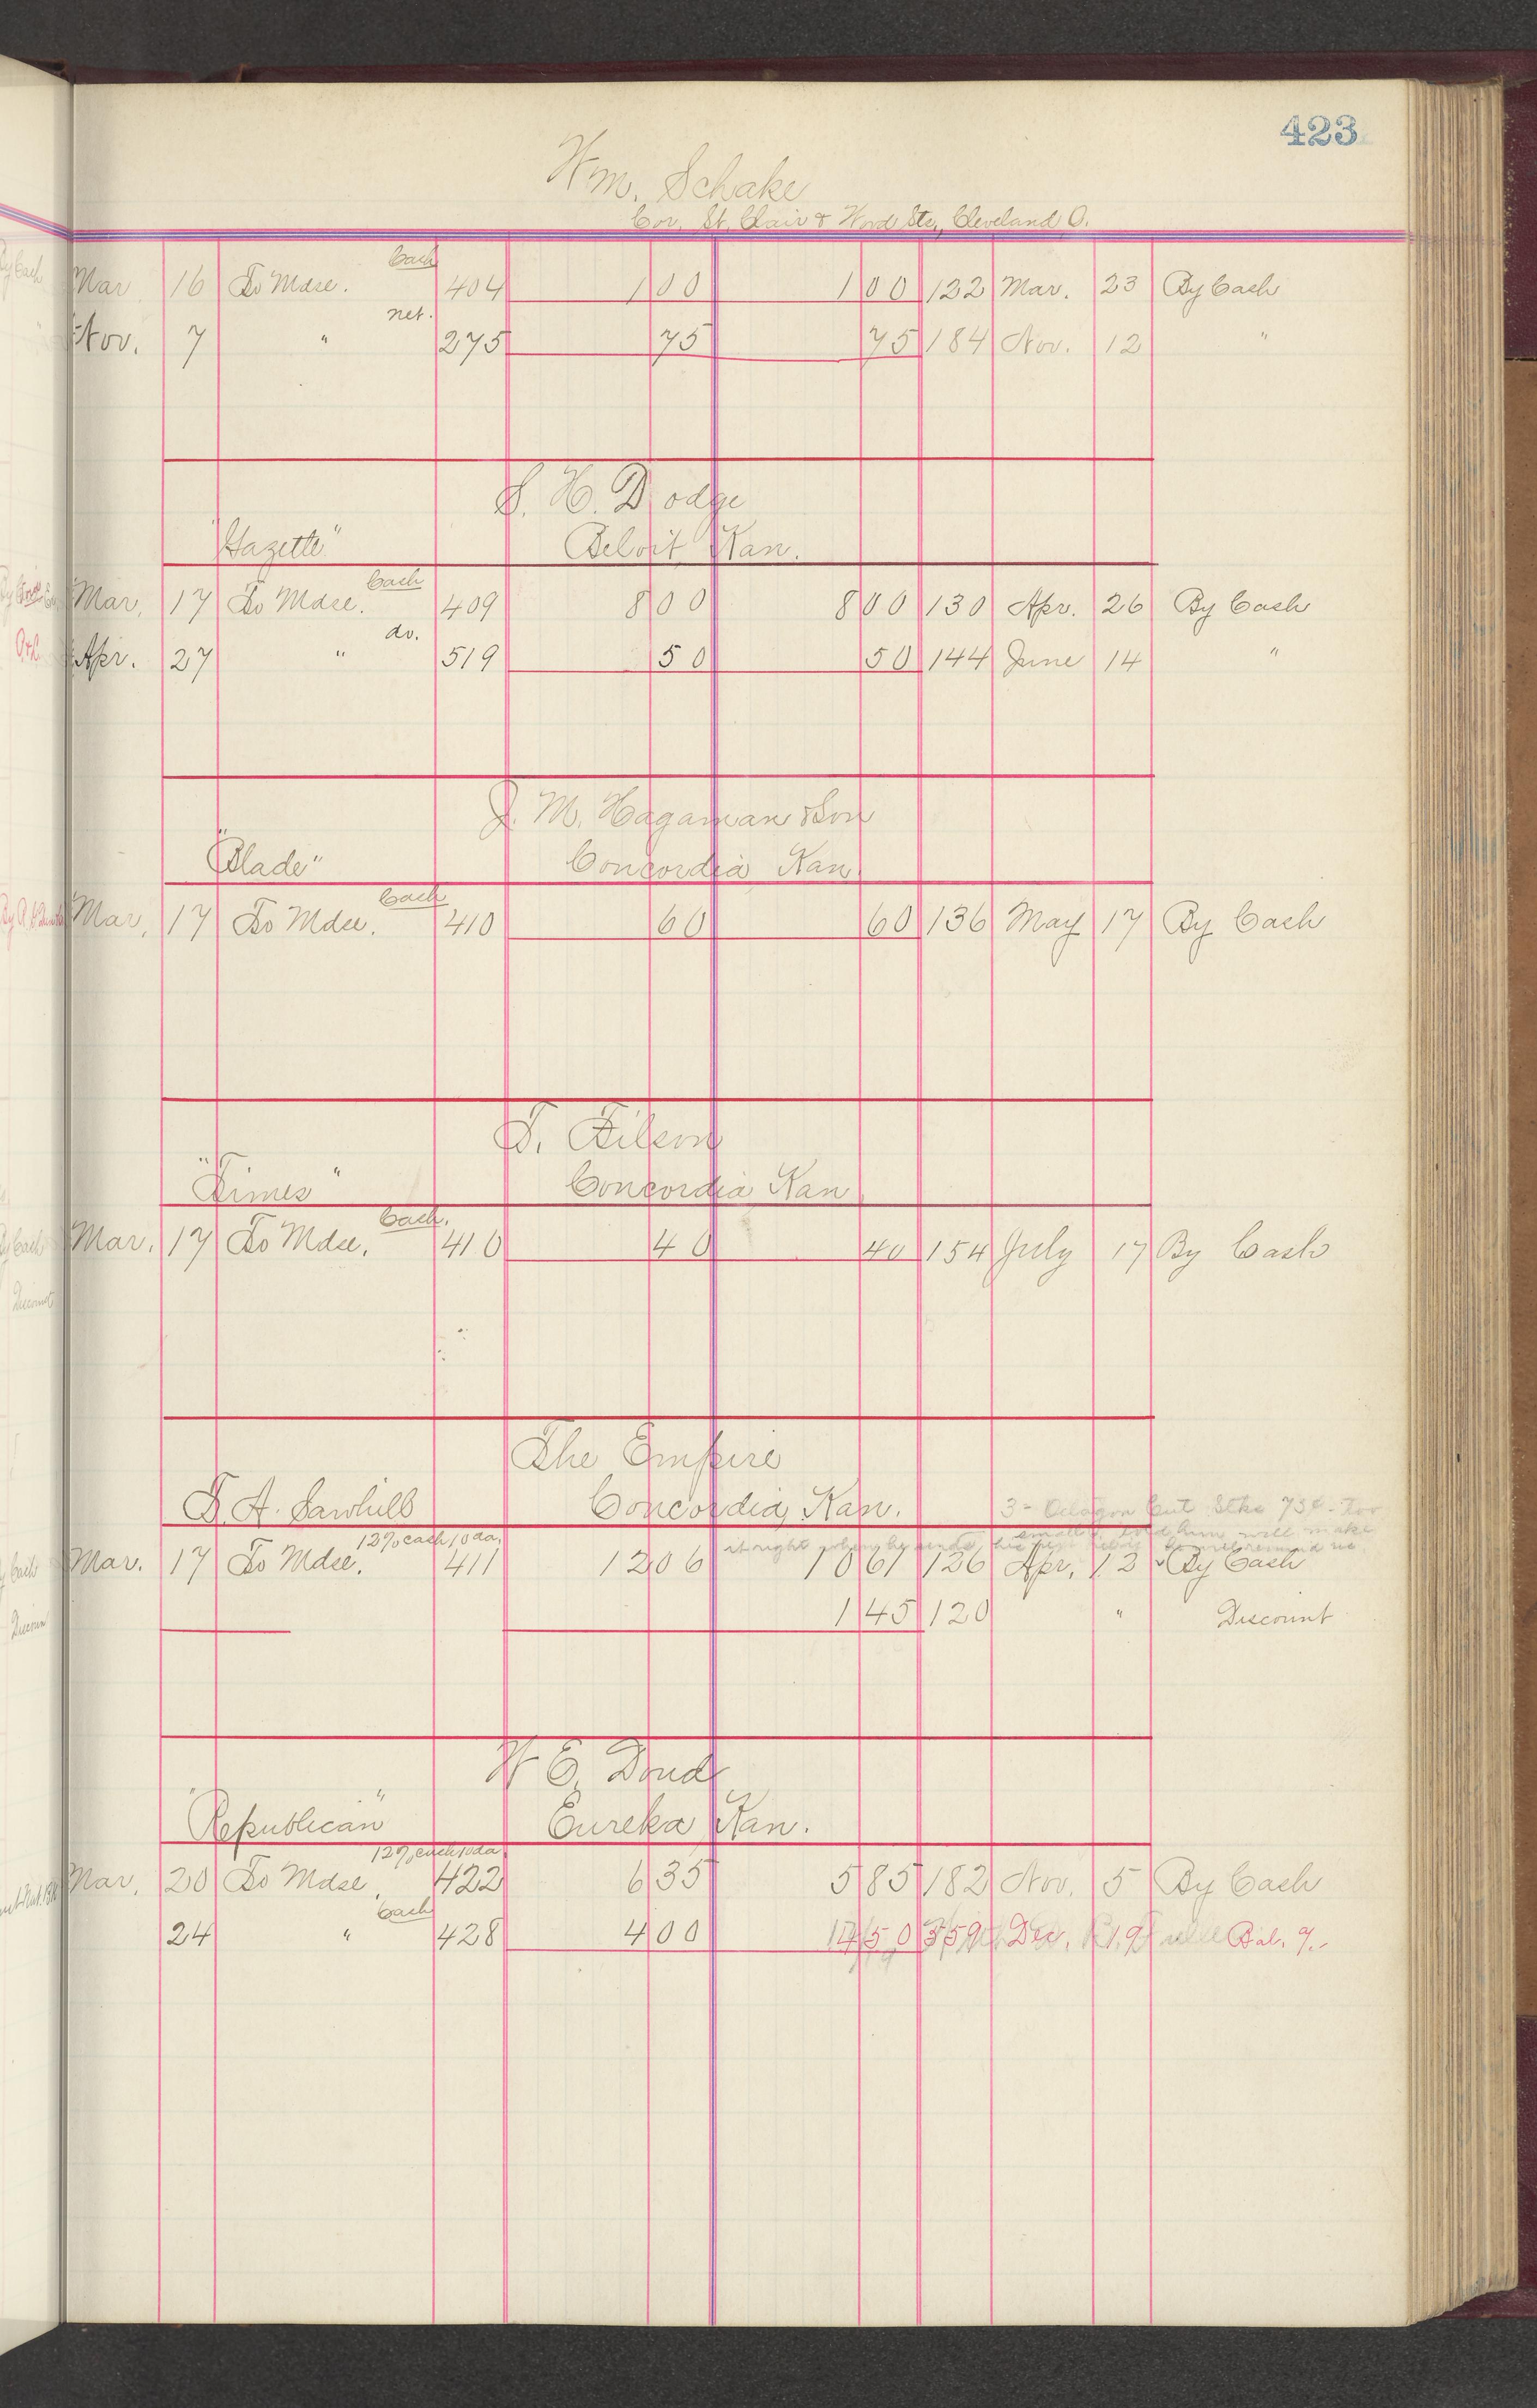 423
Wm. Schake
Cor. St. Clair & Wood Sts., Cleveland O.
Cash
Mar 16 To Mdse. 404 1 00 1 00 122 Mar. 23 By Cash
net.
Nov. 7 " 275 75 75 184 Nov. 12 "
S. H. Dodge
"Gazette" Beloit, Kan.
Cash
Mar. 17 To Mdse. 409 8 00 8 00 130 Apr. 26 By Cash
do.
Apr. 27 " 519 50 50 144 June 14 "
J. M. Hagaman & Son
"Blade" Concordia, Kan.
Cash
Mar. 17 To Mdse. 410 60 60 136 May 17 By Cash
T. Filson
"Times" Concordia, Kan
Cash.
Mar. 17 To Mdse. 410 40 40 154 July 17 By Cash
The Empire
T. A. Sawhill Concordia, Kan. 3 - Octagon Cut Stks 73¢ - too
small, told him will make
12% cash 10 da. it right when he sends his next
Mar. 17 To Mdse. 411 12 06 10 61 126 Apr. 12 By Cash
1 45 120 " Discount
W E. Doud
"Republican" Eureka, Kan.
12% cash 10 da.
Mar. 20 To Mdse. 422 6 35 5 85 182 Nov. 5 By Cash
Cash
24 " 428 4 00 4 50 359 Dec. 19 Bal. %